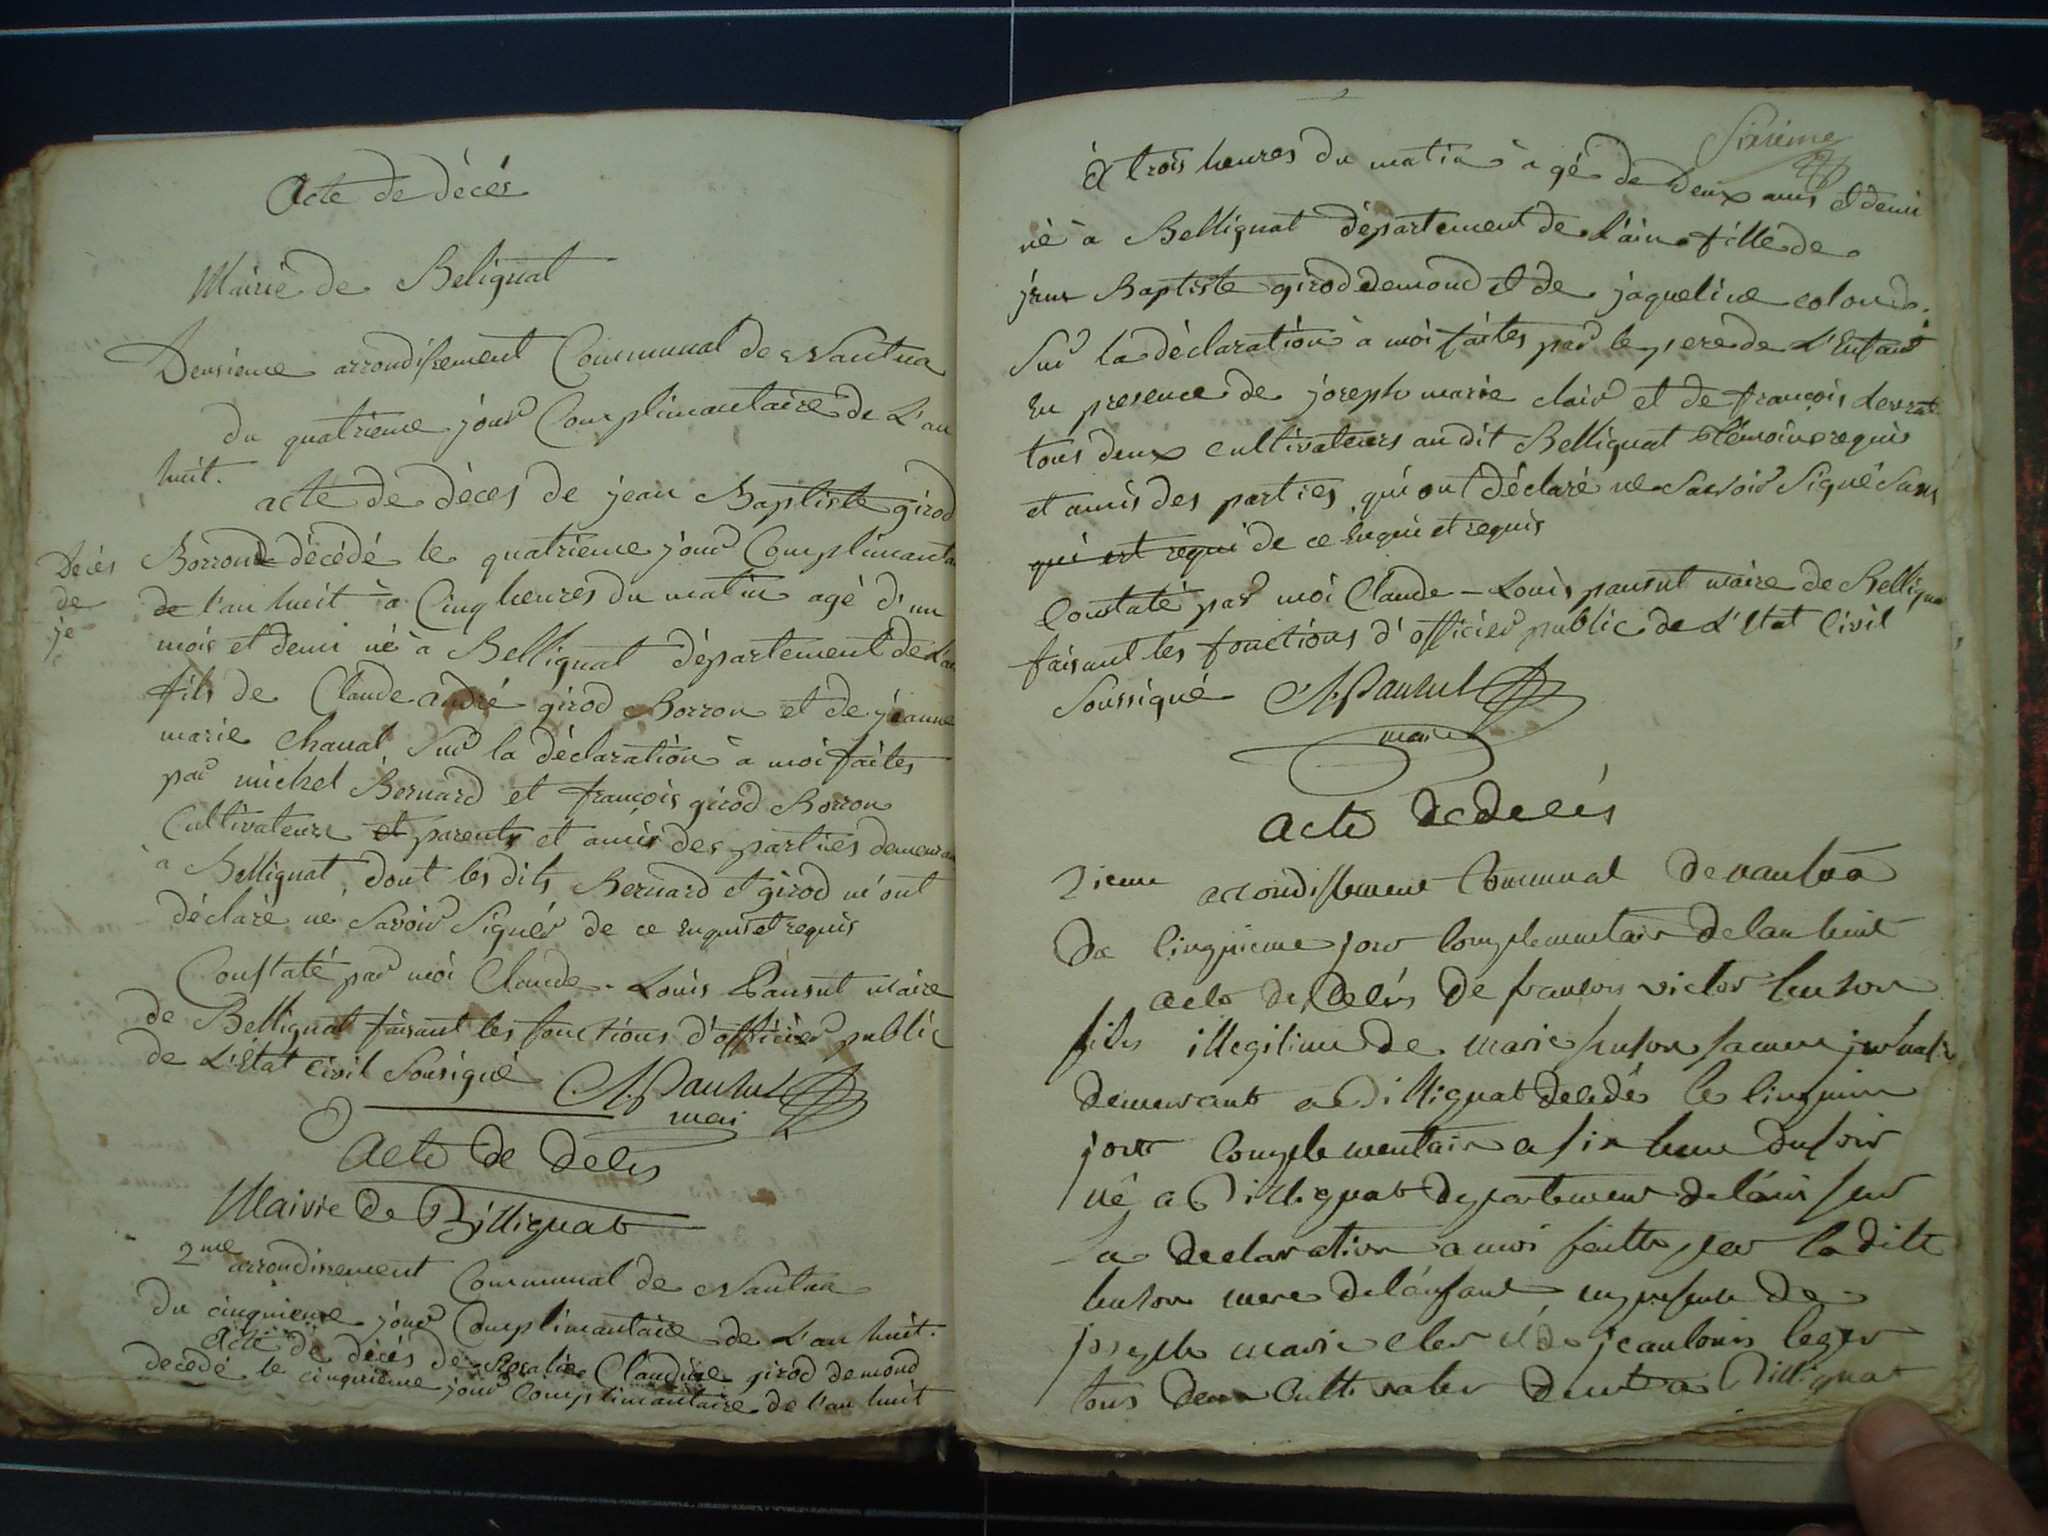 Acte de décès
Mairie de Belignat
Deusieme arrondissement Communal de Nantua
du quatrieme jour Complimantaire de L'an
huit.
acte de déces de jean Baptiste girod
Décès
de
je
Borron décédé le quatrieme jour Complimanta
de l'an huit à Cinq heures du matin agé d'un
mois et demi né à Bellignat département de L'ai
fils de Claude andré girod Borron et de jeanne
marie chanal Sur la déclaration à moi faites
par michel Bernard et françois girod Borron
Cultivateurs et parents et amis des parties demeuran
à Bellignat, dont les dits Bernard et girod m'ont
déclaré ne Savoir Signér de ce enquis et requis
Constaté par moi Claude - Louis Pansut maire
de Bellignat faisant les fonctions d'officier public
de L'état Civil Sousigné Cl. Pansut
mai
Acte de deces
Mairie de Billignat
2me arrondissement Communal de Nantua
Du cinquieme jour Complimantaire de L'an huit.
acte de décès de Rosalie Claudine girod demond
decedé le cinquième jour Complimantaire de l'an huit
Sixième
à trois heures du matin à gé de Deux ans et demi
né à Bellignat département de L'ain fille de
jean Baptiste girod demond et de jaqueline colond.
Sur la déclaration à moi faites par le pere de L'Enfant
En presence de joseph marie clair et de françois Levrat
tous deux cultivateurs au dit Bellignat témoins requis
et amis des parties qui ont déclaré ne Savoir Signé Sans
qui est requi de ce Enquis et requis
Constaté par moi Claude - Louis pansut maire de Bellignat
faisant les fonctions d'officier public de L'Etat Civil
Soussigné Cl. Pansut
maire
acte de deces
2ieme arondissement Communal de nantua
Du Cinquieme jour Complementair de lan huit
acte de deces de francois victor huson
fils illegitime de marie huson
demeurant a Billignat decedé le Cinquieme
jour Complementair a six heure du soir
né a Billignat departement de lain sur
la declaration a moi faitte par la dite
huson mere de l'enfant en presence de
joseph marie cler et de jean louis leger
tous deux Cultivateur a Billignat